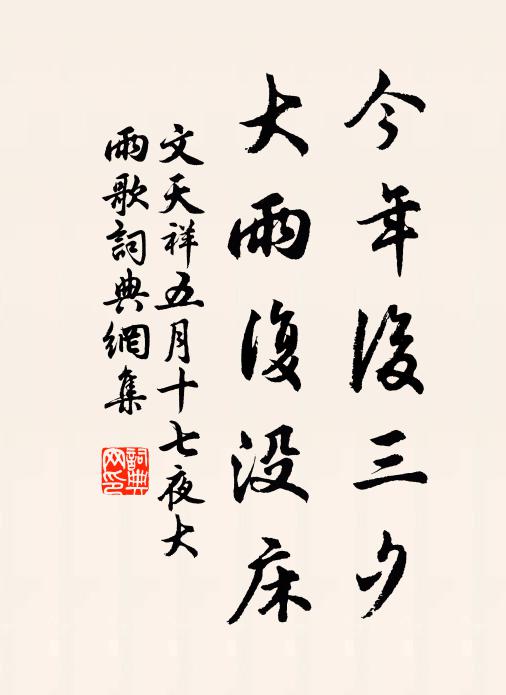 今年後三夕
大雨復没床
文天祥五月十七夜大
雨歌詞典網集
詞典网印